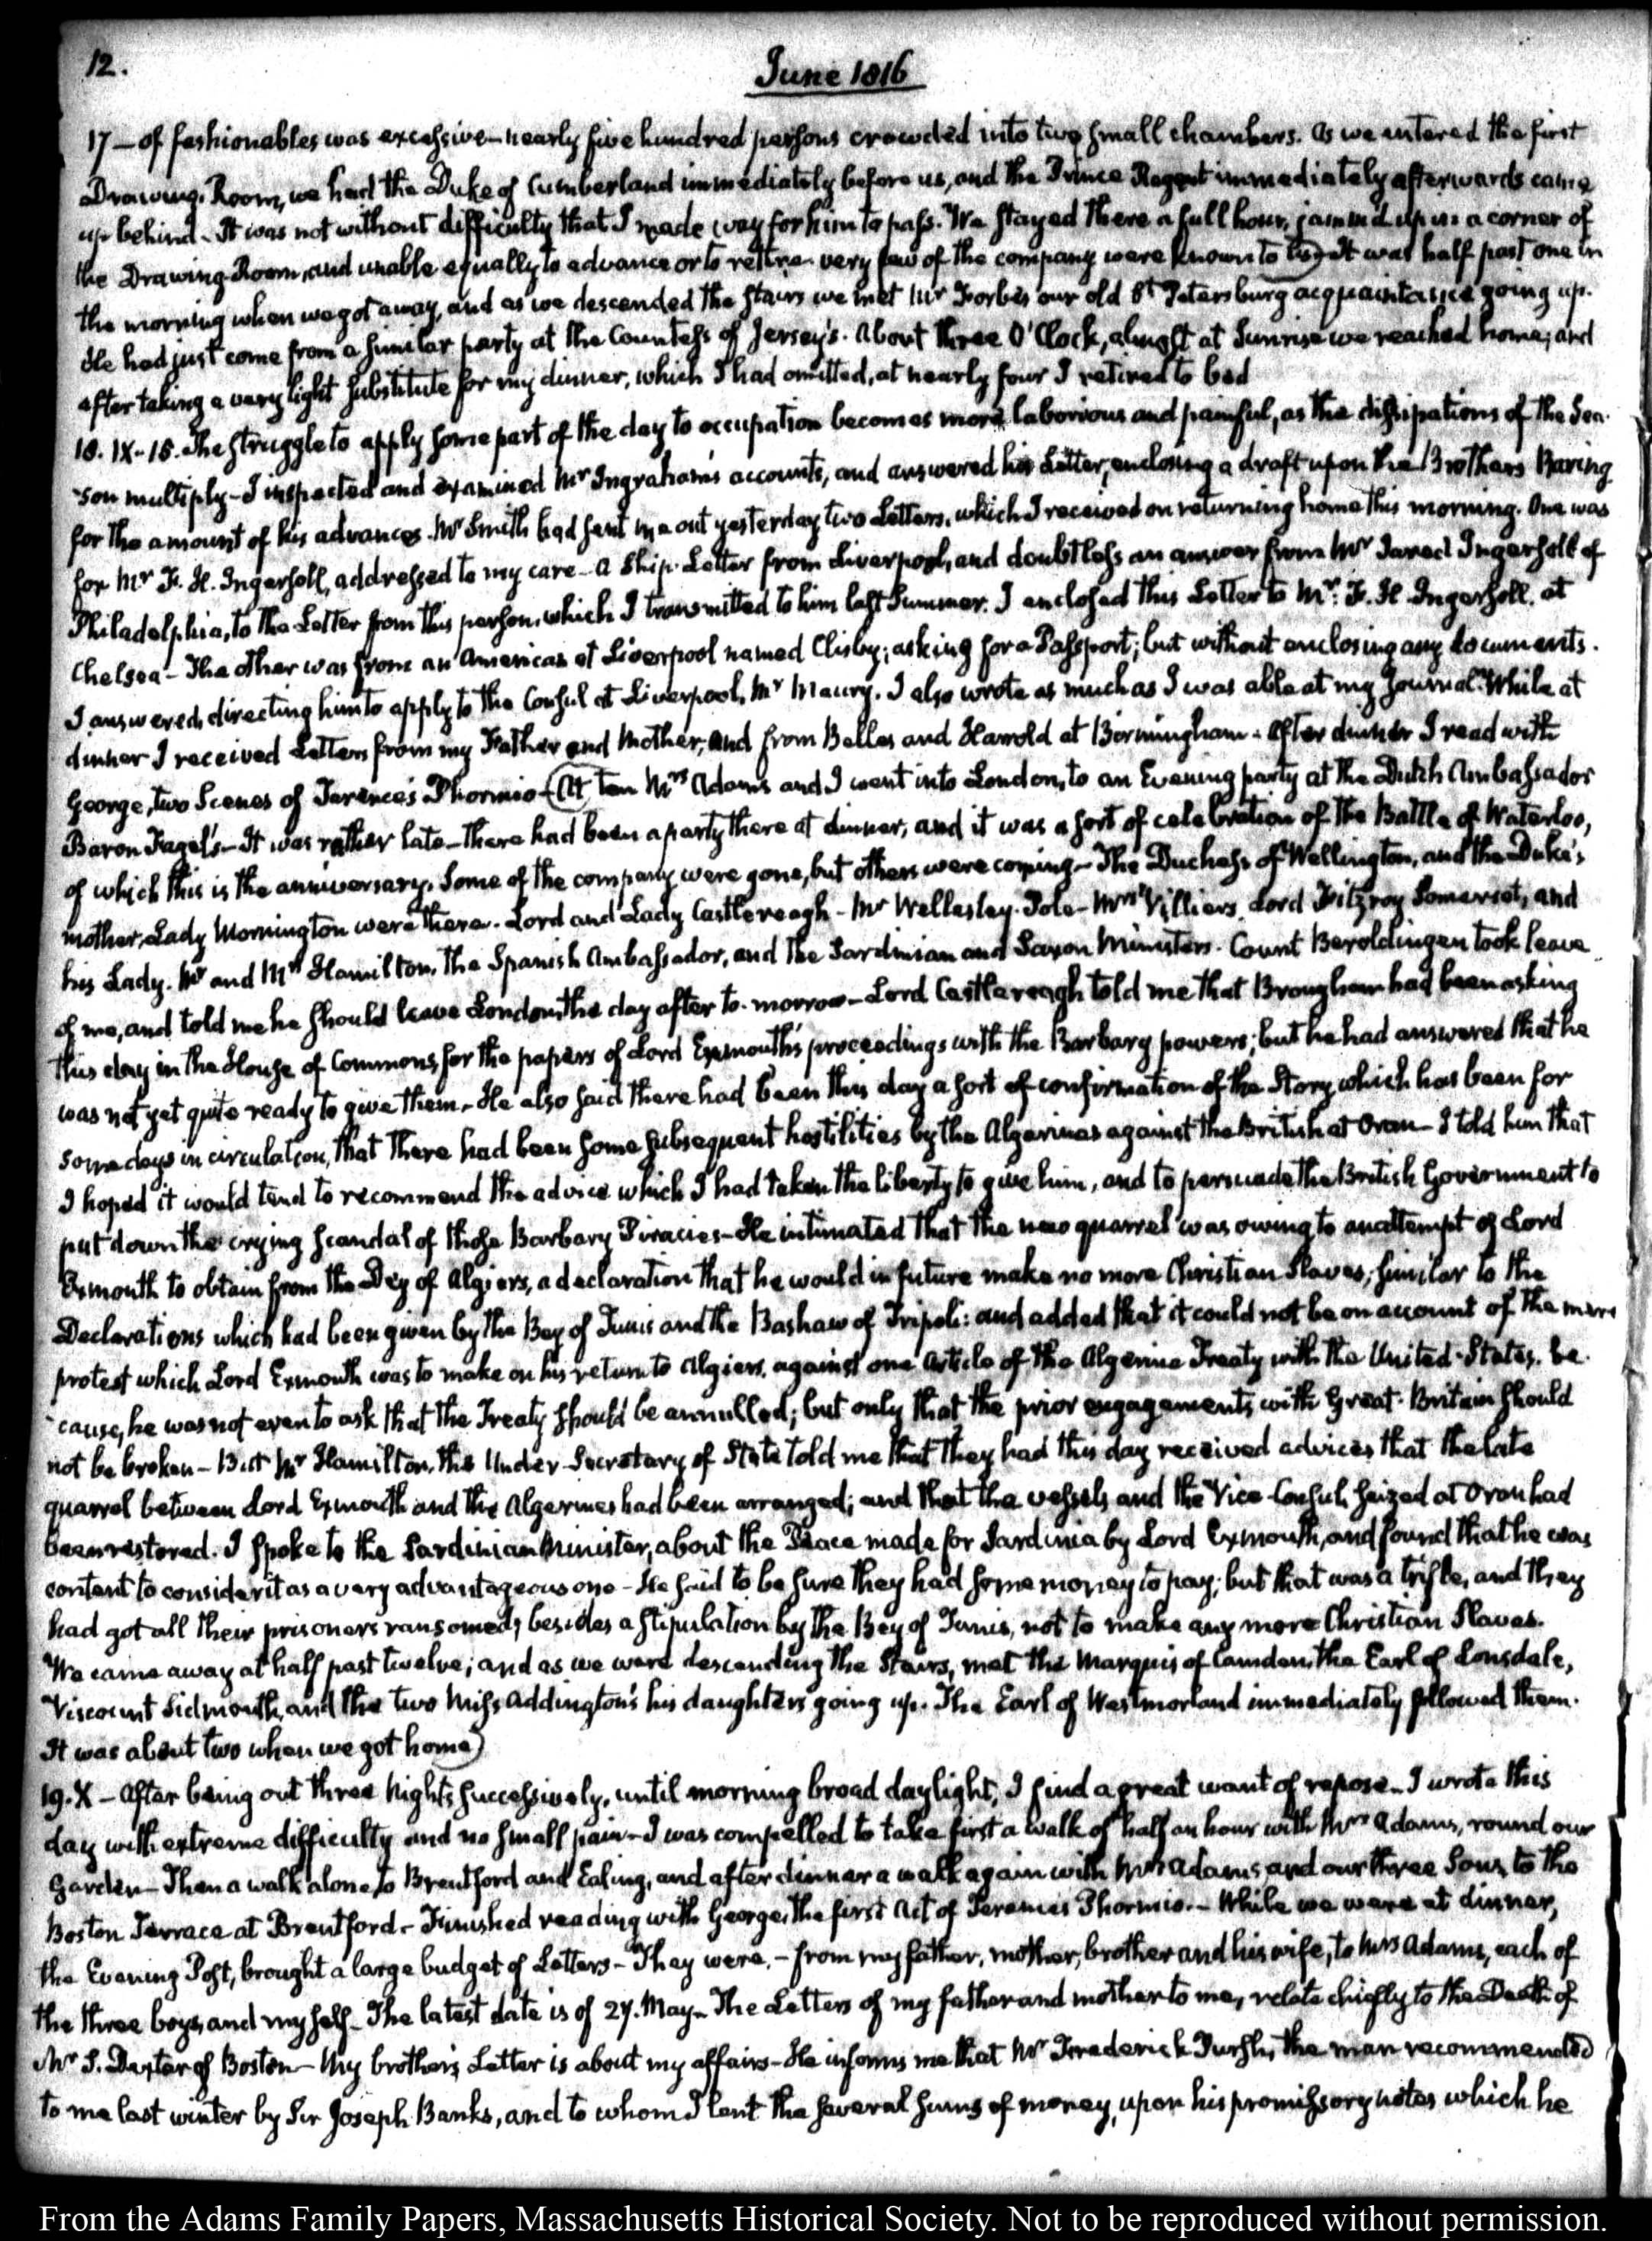 12.
June 1816
17 — of fashionables was excessive — nearly five hundred persons crowded into two small chambers. As we entered the first
Drawing-Room, we had the Duke of Cumberland immediately before us, and the Prince Regent immediately afterwards came
up behind. It was not without difficulty that I made way for him to pass. We stayed there a full hour, jammed up in a corner of
the Drawing-Room, and unable equally to advance or to retire — very few of the company were known to us) It was half past one in
the morning when we got away, and as we descended the stairs we met Mr Forbes our old St Petersburg acquaintance going up.
He had just come from a similar party at the Countess of Jersey's. About three O'Clock, almost at Sunrise we reached home; and
after taking a very light substitute for my dinner, which I had omitted, at nearly four I retired to bed
18. IX-15. The struggle to apply some part of the day to occupation becomes more laborious and painful, as the dissipations of the Sea-
-son multiply — I inspected and examined Mr Ingraham's accounts, and answered his Letter, enclosing a draft upon the Brothers Baring
for the amount of his advances. Mr Smith had sent me out yesterday two Letters, which I received on returning home this morning. One was
for Mr F. H. Ingersoll, addressed to my care — a Ship-Letter from Liverpool, and doubtless an answer from Mr Jared Ingersoll of
Philadelphia, to the Letter from this person, which I transmitted to him last Summer. I enclosed this Letter to Mr: F. H. Ingersoll, at
Chelsea — The other was from an American at Liverpool named Clisby; asking for a Passport; but without enclosing any documents.
I answered, directing him to apply to the Consul at Liverpool, Mr Maury. I also wrote as much as I was able at my Journal. While at
dinner I received Letters from my Father and Mother, and from Belles and Harrold at Birmingham. After dinner I read with
George, two Scenes of Terence's Phormio — (At ten Mrs Adams and I went into London, to an Evening party at the Dutch Ambassador
Baron Fagel's — It was rather late — there had been a party there at dinner, and it was a sort of celebration of the Battle of Waterloo,
of which this is the anniversary. Some of the company were gone, but others were coming — The Duchess of Wellington, and the Duke's
mother, Lady Mornington were there. Lord and Lady Castlereagh — Mr Wellesley-Pole — Mrs Villiers, Lord Fitzroy Somerset, and
his Lady. Mr and Mrs Hamilton, the Spanish Ambassador, and the Sardinian and Saxon Ministers. Count Beroldingen took leave
of me, and told me he should leave London, the day after to-morrow — Lord Castlereagh told me that Brougham had been asking
this day in the House of Commons, for the papers of Lord Exmouth's proceedings with the Barbary powers; but he had answered that he
was not yet quite ready to give them — He also said there had been this day a sort of confirmation of the Story, which has been for
some days in circulation, that there had been some subsequent hostilities by the Algerines against the British at Oran — I told him that
I hoped it would tend to recommend the advice which I had taken the liberty to give him, and to persuade the British Government to
put down the crying scandal of those Barbary Piracies — He intimated that the new quarrel was owing to an attempt of Lord
Exmouth to obtain from the Dey of Algiers, a declaration that he would in future make no more Christian Slaves, similar to the
Declarations which had been given by the Bey of Tunis and the Bashaw of Tripoli: and added that it could not be on account of the mere
protest which Lord Exmouth was to make on his return to Algiers, against one Article of the Algerine Treaty with the United-States, be-
-cause, he was not even to ask that the Treaty should be annulled; but only that the prior engagements with Great-Britain should
not be broken — But Mr Hamilton, the Under-Secretary of State told me that they had this day received advices that the late
quarrel between Lord Exmouth and the Algerines had been arranged; and that the vessels and the Vice-Consul, seized at Oran had
been restored. I spoke to the Sardinian Minister, about the Peace made for Sardinia by Lord Exmouth, and found that he was
content to consider it as a very advantageous one — He said to be sure they had some money to pay; but that was a trifle, and they
had got all their prisoners ransomed; besides a stipulation by the Bey of Tunis, not to make any more Christian Slaves.
We came away at half past twelve; and as we were descending the Stairs, met the Marquis of Camden, the Earl of Lonsdale,
Viscount Sidmouth, and the two Miss Addington's his daughters going up. The Earl of Westmorland immediately followed them.
It was about two when we got home)
19. X — After being out three nights successively, until morning broad daylight, I find a great want of repose — I wrote this
day with extreme difficulty and no small pain — I was compelled to take first a walk of half an hour with Mrs Adams, round our
garden — Then a walk alone to Brentford and Ealing, and after dinner a walk again with Mrs Adams and our three Sons, to the
Boston Terrace at Brentford — Finished reading with George, the first Act of Terence's Phormio. — While we were at dinner,
the Evening Post, brought a large budget of Letters — They were, — from my father, mother, brother and his wife, to Mrs Adams, each of
the three boys, and myself — The latest date is of 27. May — The Letters of my father and mother to me, relate chiefly to the Death of
Mr S. Dexter of Boston — My brother's Letter is about my affairs — He informs me that Mr Frederick Pursh, the man recommended
to me last winter by Sir Joseph Banks, and to whom I lent the several sums of money, upon his promissory notes which he
From the Adams Family Papers, Massachusetts Historical Society. Not to be reproduced without permission.